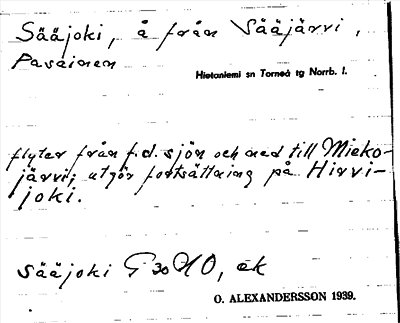 Sääjoki, å från Sääjärvi,
Pasainen
Hietaniemi sn Torneå tg Norrb. l.
flyter från f.d. sjön och ned till Mieko-
järvi; utgör fortsättning på Hirvi-
joki.
Sääjoki 30 NO, ek
O. ALEXANDERSSON 1939.